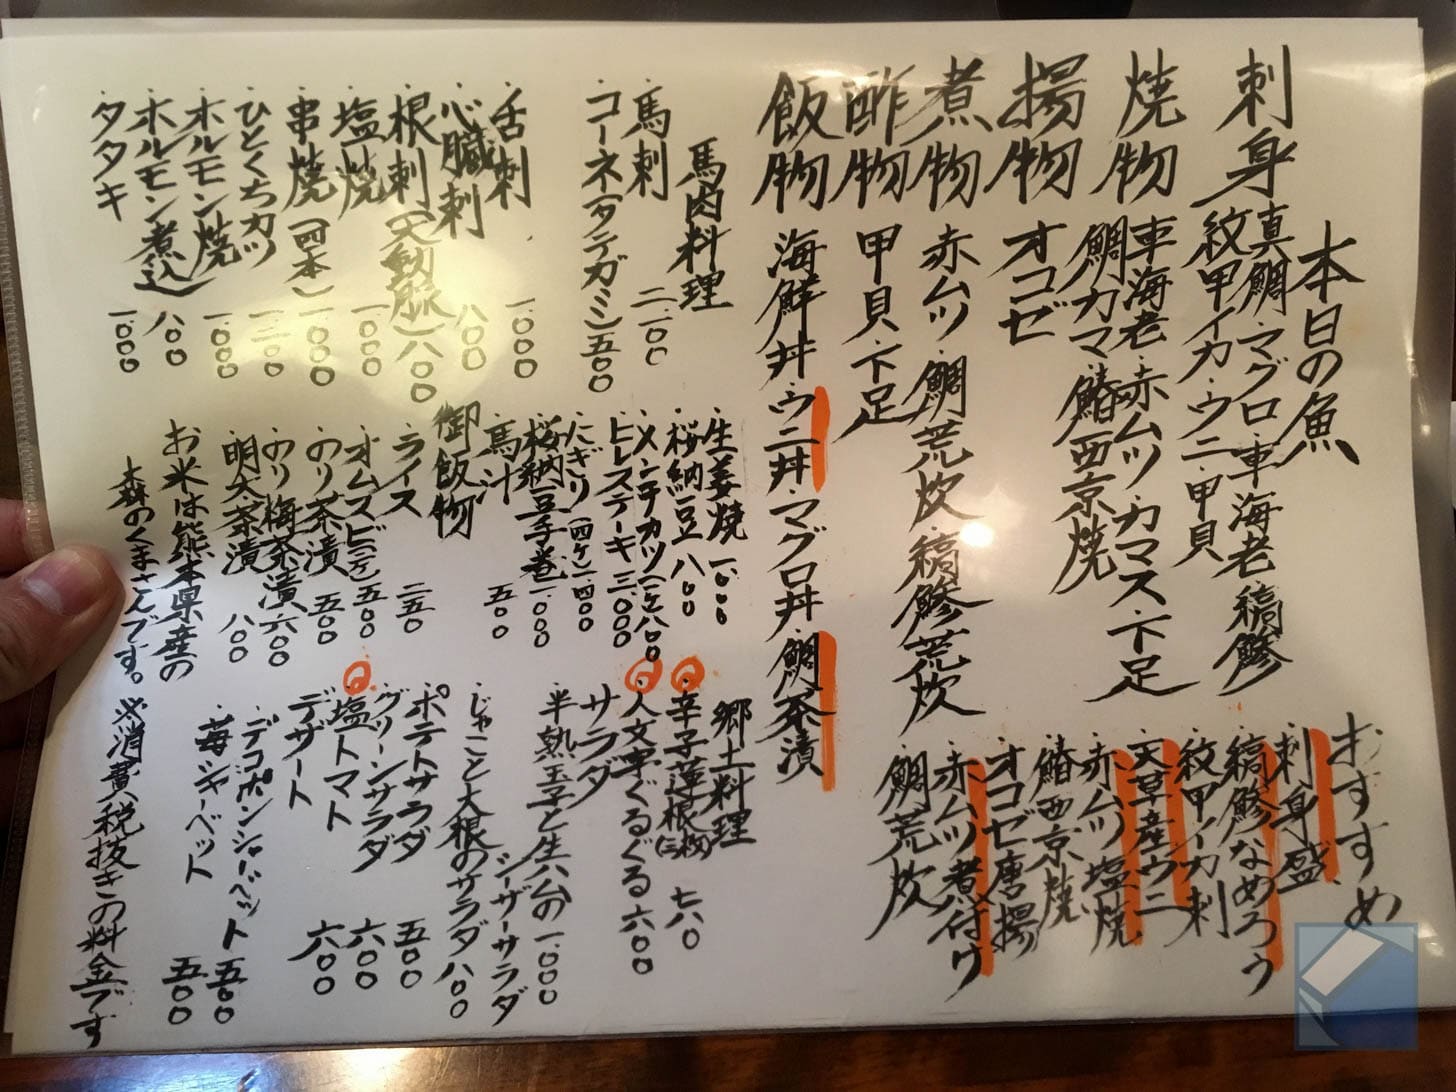 本日の魚
刺身 真鯛・マグロ・車海老・縞鯵
紋甲イカ・ウニ・甲貝
焼物 車海老・赤ムツ・カマス・下足
鯛カマ・鰆西京焼
揚物 オコゼ
煮物 赤ムツ・鯛荒炊・縞鯵荒炊
酢物 甲貝・下足
飯物 海鮮丼・ウニ丼・マグロ丼・鯛茶漬
おすすめ
・刺身盛
・縞鯵なめろう
・紋甲イカ刺
・天草産ウニ
・赤ムツ塩焼
・鰆西京焼
・オコゼ唐揚
・赤ムツ煮付け
・鯛荒炊
馬肉料理
・馬刺 二一〇〇
・コーネ(タテガミ)五〇〇
・舌刺 一〇〇〇
・心臓刺 八〇〇
・根刺(大動脈)八〇〇
・塩焼 一〇〇〇
・串焼(四本)一〇〇〇
・ひとくちカツ 一二〇〇
・ホルモン焼 一〇〇〇
・ホルモン煮込 八〇〇
・タタキ 一〇〇〇
・生姜焼 一〇〇〇
・桜納豆 八〇〇
・メンチカツ(二ケ)八〇〇
・ヒレステーキ 三〇〇〇
・にぎり(四ケ)一四〇〇
・桜納豆手巻 一〇〇〇
・馬汁 五〇〇
御飯物
・ライス 二五〇
・オムスビ(二ケ)五〇〇
・のり茶漬 五〇〇
・のり梅茶漬 六〇〇
・明太茶漬 八〇〇
お米は熊本県産の
森のくまさんです。
郷土料理
・辛子蓮根(三枚)七八〇
・一文字ぐるぐる 六〇〇
サラダ
・半熟玉子と生ハムの
シーザーサラダ 一〇〇〇
・じゃこと大根のサラダ 八〇〇
・ポテトサラダ 五〇〇
・グリーンサラダ 六〇〇
・塩トマト 六〇〇
デザート
・デコポンシャーベット 五〇〇
・苺シャーベット 五〇〇
※消費税抜きの料金です